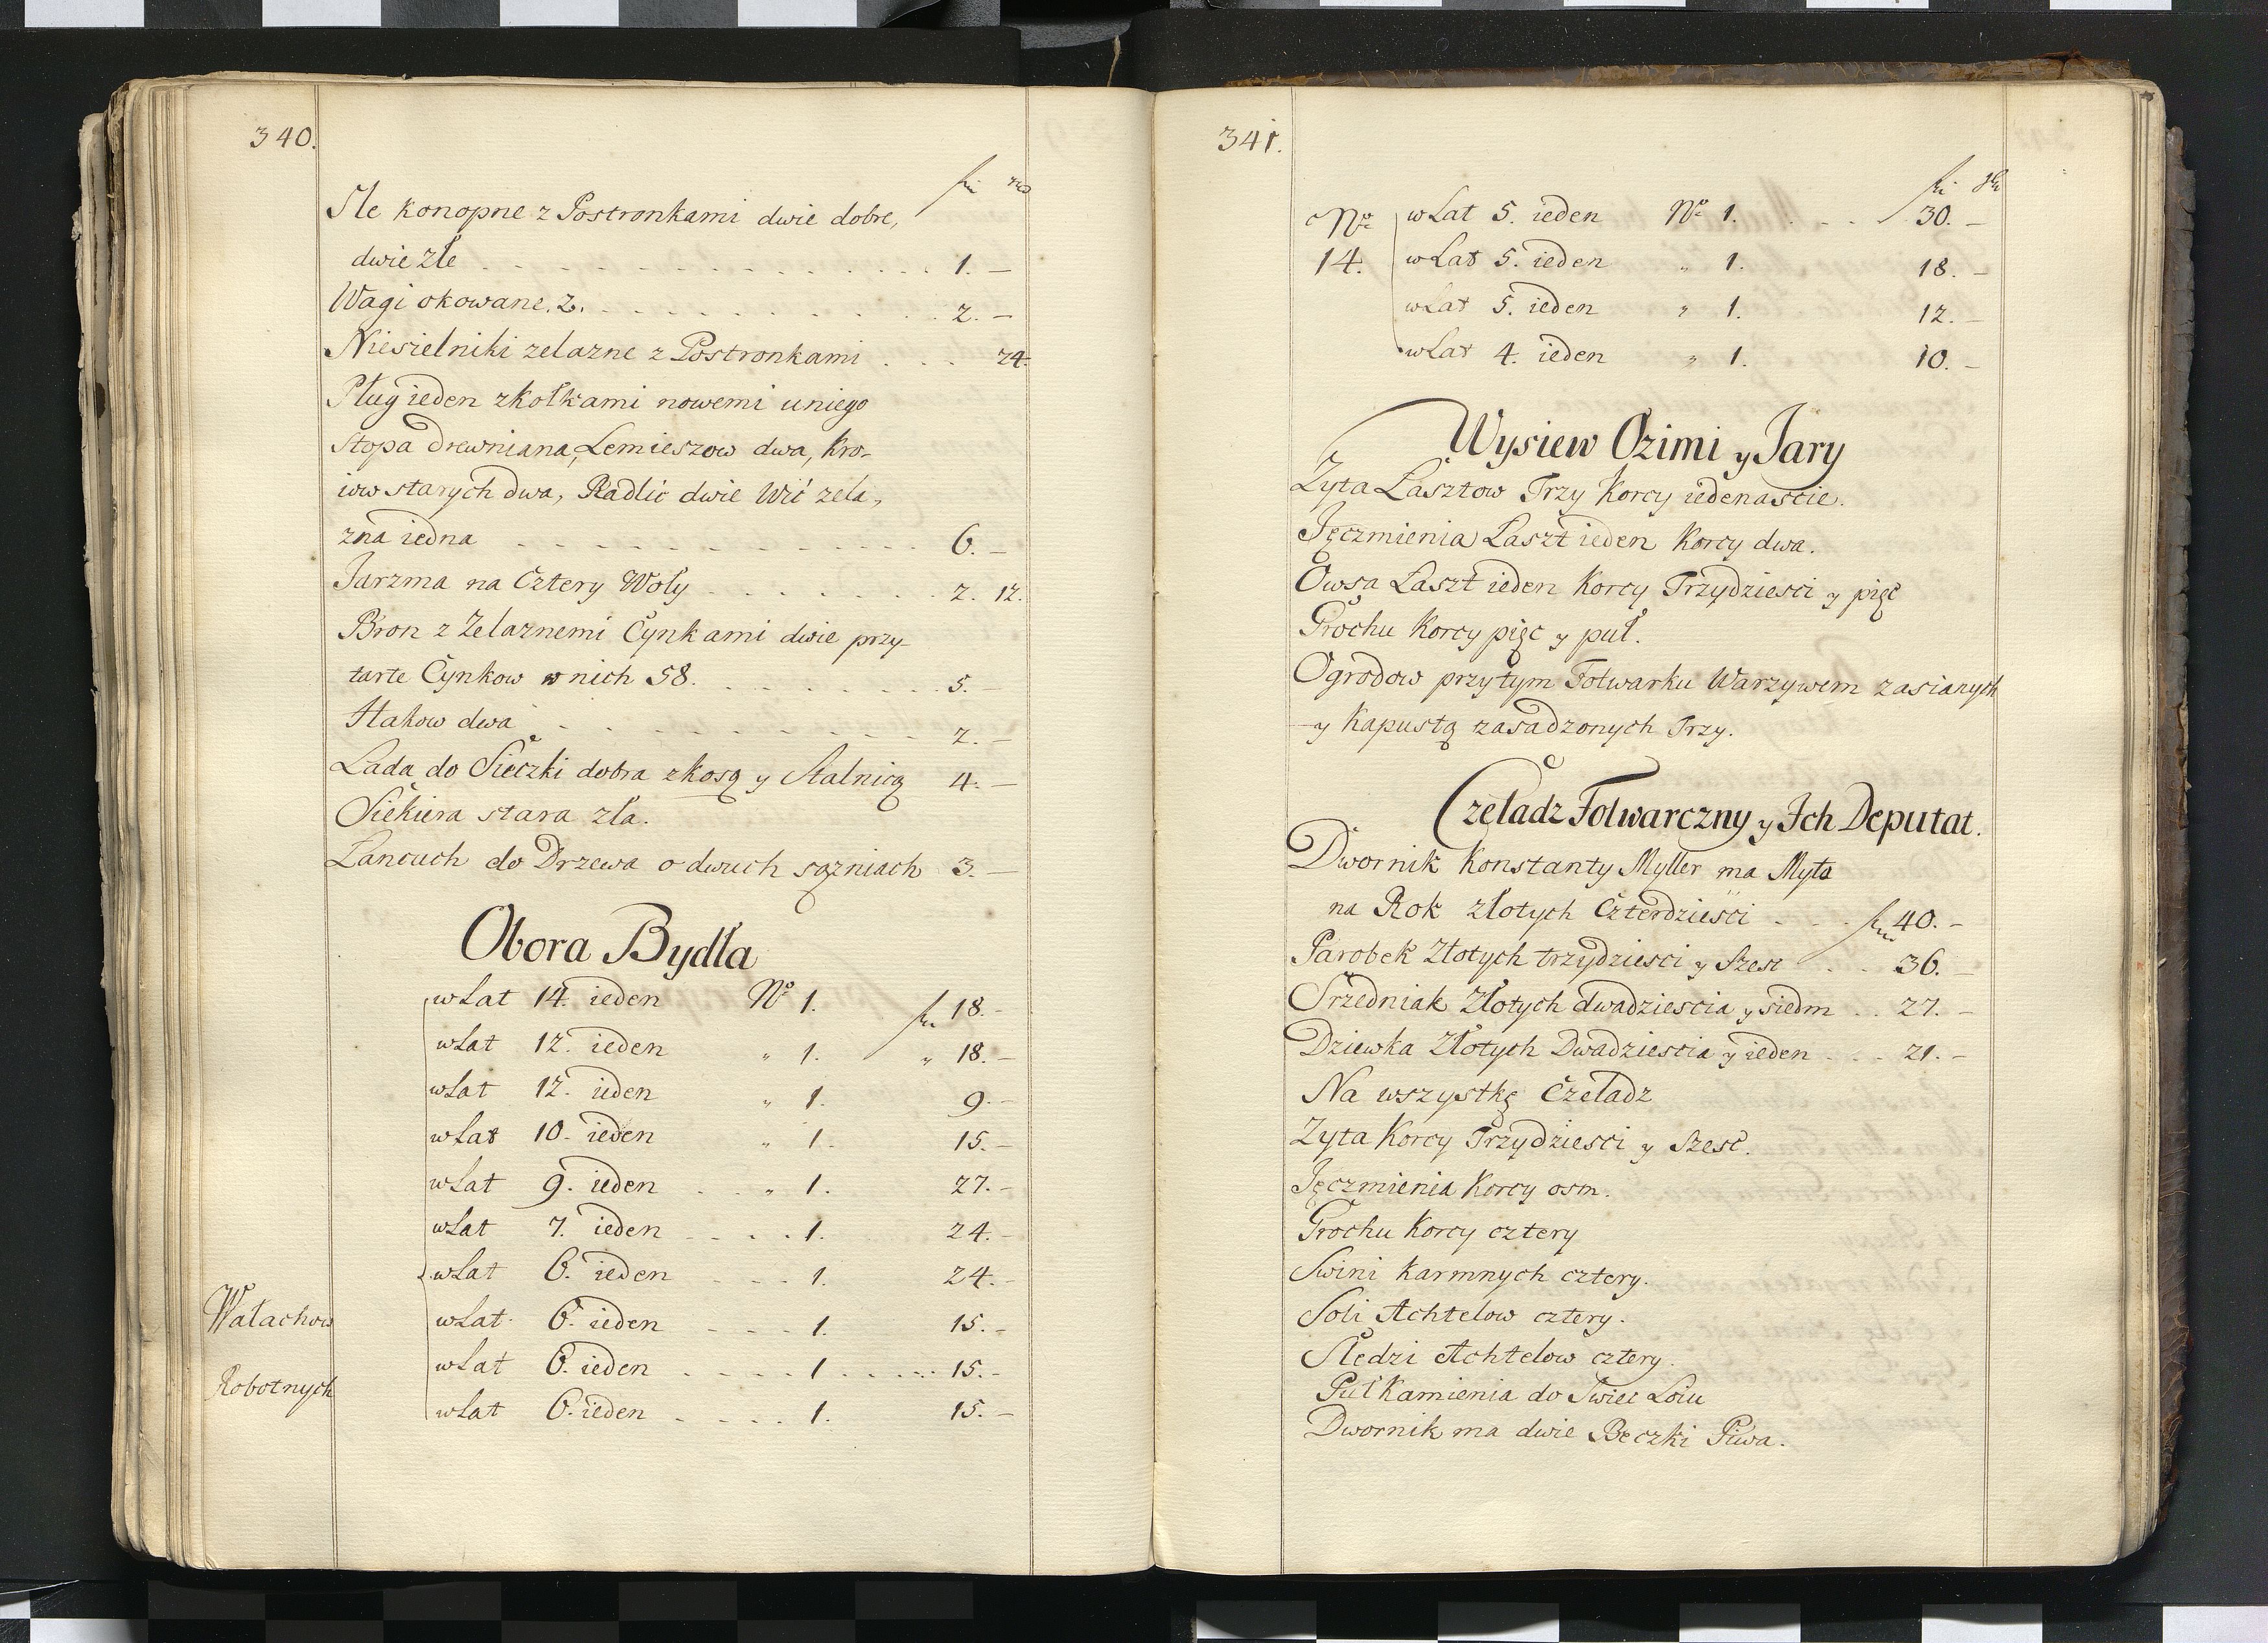 340.
Sle konopne z Postronkami dwie dobre,
dwie złe . . . 1. —
Wagi okowane. 2. . . . 2. —
Niesielniki zelazne z Postronkami . . . 24.
Pług ieden zkołkami nowemi uniego
stopa drewniana, Lemieszow dwa, Kro-
iow starych dwa, Radlic dwie Wić zela,
zna iedna . . . 6. —
Jarzma na Cztery Woły . . . 2. 12.
Bron z Zelaznemi Cynkami dwie przy-
tarte Cynkow w nich 58. . . . 5. —
Hakow dwa . . . 2. —
Lada do Sieczki dobra zkosą y Stalnicą 4. —
Siekiera stara zła.
Lancuch do Drzewa o dwuch sążniach 3. —
Obora Bydła
w Lat 14. ieden No 1. 18. -
w Lat 12. ieden „ 1. „ 18. —
w Lat 12. ieden „ 1. 9. -
w Lat 10. ieden „ 1. 15. —
w Lat 9. ieden . . „ 1. 27. -
w Lat 7. ieden . . . . 1. 24. -
w Lat 6. ieden . . . 1. 24. -
Wałachow
w Lat 6. ieden . . . 1. 15. -
w Lat 6. ieden . . . 1 . . . 15. -
Robotnych
w Lat 6. ieden . . . 1. 15. —
341.
No w Lat 5. ieden No 1. . . . 30. —
14. w Lat 5. ieden „ 1. 18. —
w Lat 5. ieden „ 1. 12. —
w Lat 4. ieden „ 1. 10. —
Wysiew Ozimi y Jary
Zyta Łasztow Trzy Korcy iedenascie.
Jęczmienia Łaszt ieden Korcy dwa.
Owsa Łaszt ieden Korcy Trzydziesci y pięć
Grochu Korcy pięc y puł.
Ogrodow przytym Folwarku Warzywem zasianych
y Kapustą zasadzonych Trzy.
Czeladz Folwarczny y Ich Deputat.
Dwornik Konstanty Myller ma Myta
na Rok złotych Czterdziesci . . . 40. —
Parobek Złotych trzydziesci y Szesc . . . 36. —
Srzedniak Złotych dwadziescia y siedm . . 27. —
Dziewka Złotych Dwadziescia y ieden . . . 21. —
Na wszystkę Czeladz
Zyta Korcy Trzydziesci y Szesc.
Jęczmienia Korcy osm.
Grochu Korcy cztery
Swini karmnych cztery.
Soli Achtelow cztery.
Sledzi Achtelow cztery.
Puł Kamienia do Swiec Łoiu
Dwornik ma dwie Beczki Piwa.